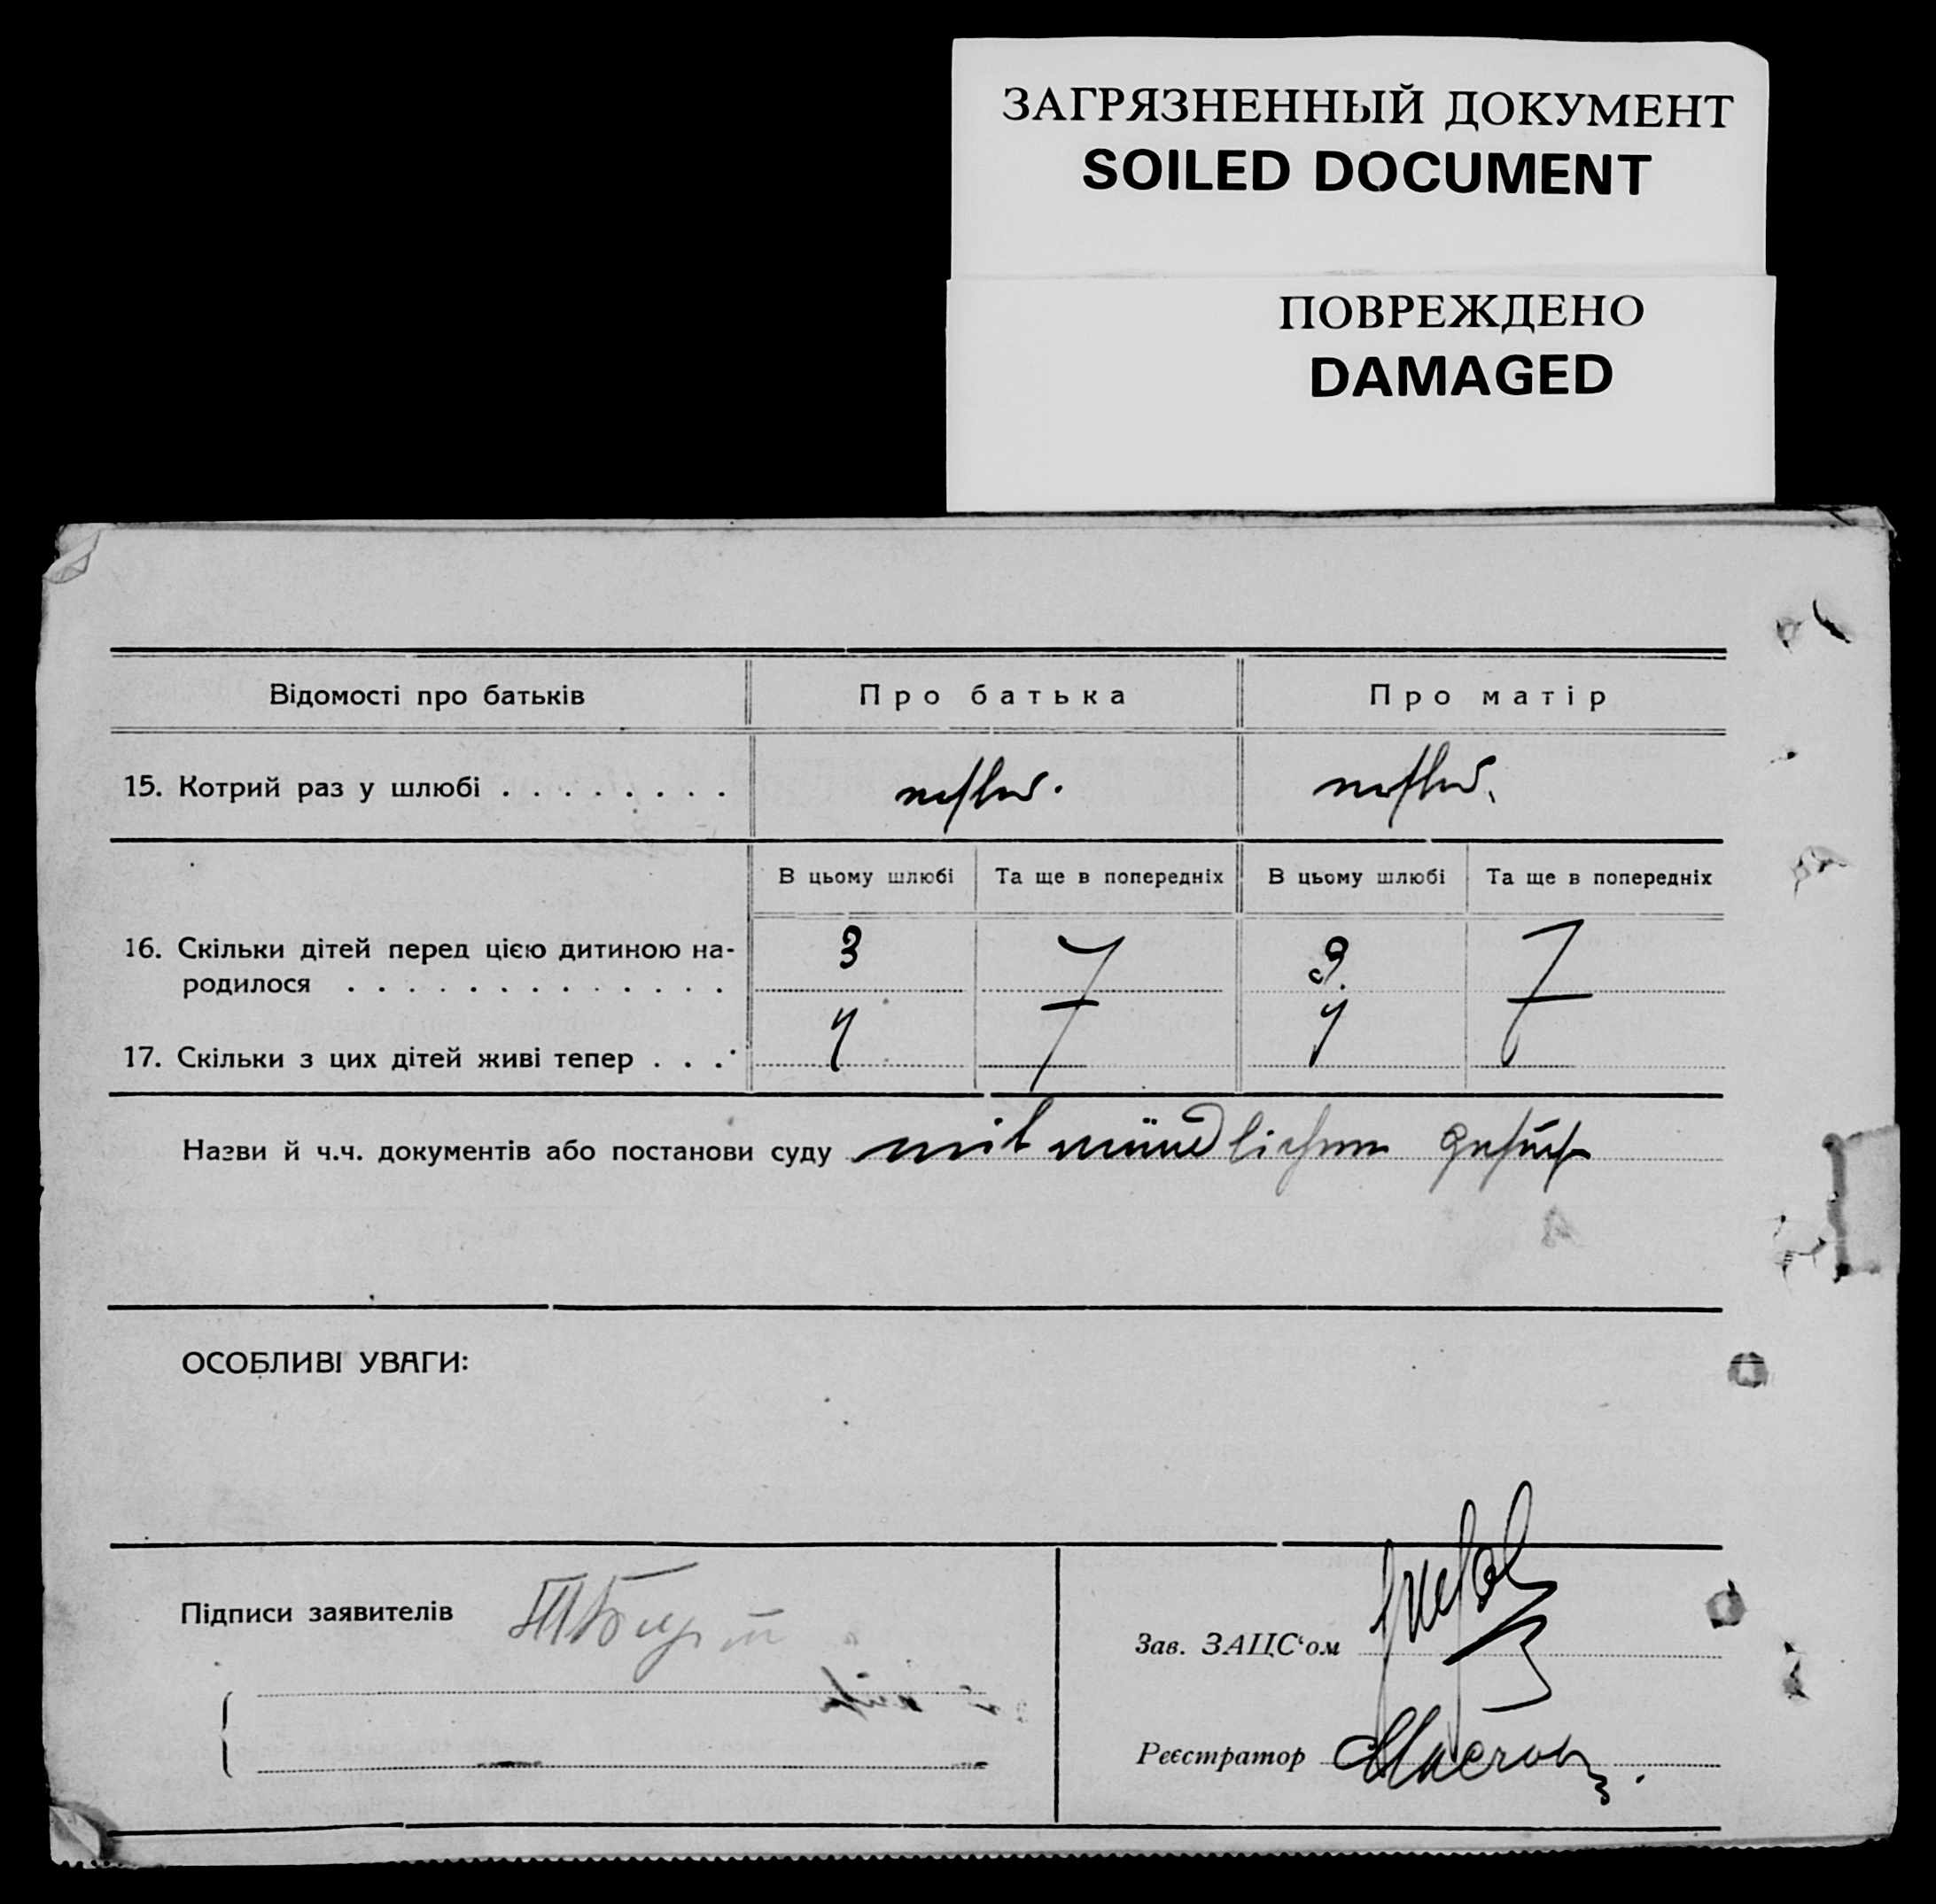 ЗАГРЯЗНЕННЫЙ ДОКУМЕНТ
SOILED DOCUMENT
ПОВРЕЖДЕНО
DAMAGED
Відомості про батьків Про батька Про матір
15. Котрий раз у шлюбі . . . . . . . .
В цьому шлюбі Та ще в попередніх В цьому шлюбі Та ще в попередніх
16. Скільки дітей перед цією дитиною на-
родилося . . . . . . . . . . . . . 3
17. Скільки з цих дітей живі тепер . . .
Назви й ч.ч. документів або постанови суду mit mündlichem Gesuch
ОСОБЛИВІ УВАГИ:
Підписи заявителів
Зав. ЗАЦС‘ом
Реєстратор